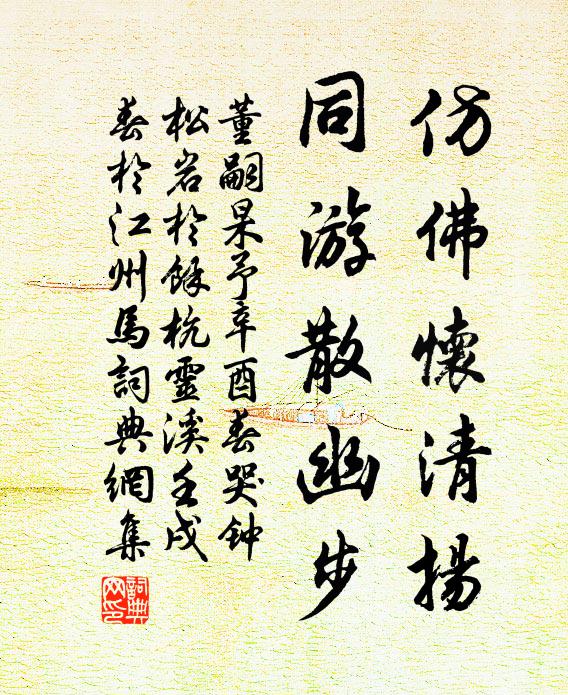 仿佛懷清揚
同游散幽步
董嗣杲予辛酉春哭钟
松岩於餘杭靈溪壬戌
春於江州馬詞典網集
詞典
网印